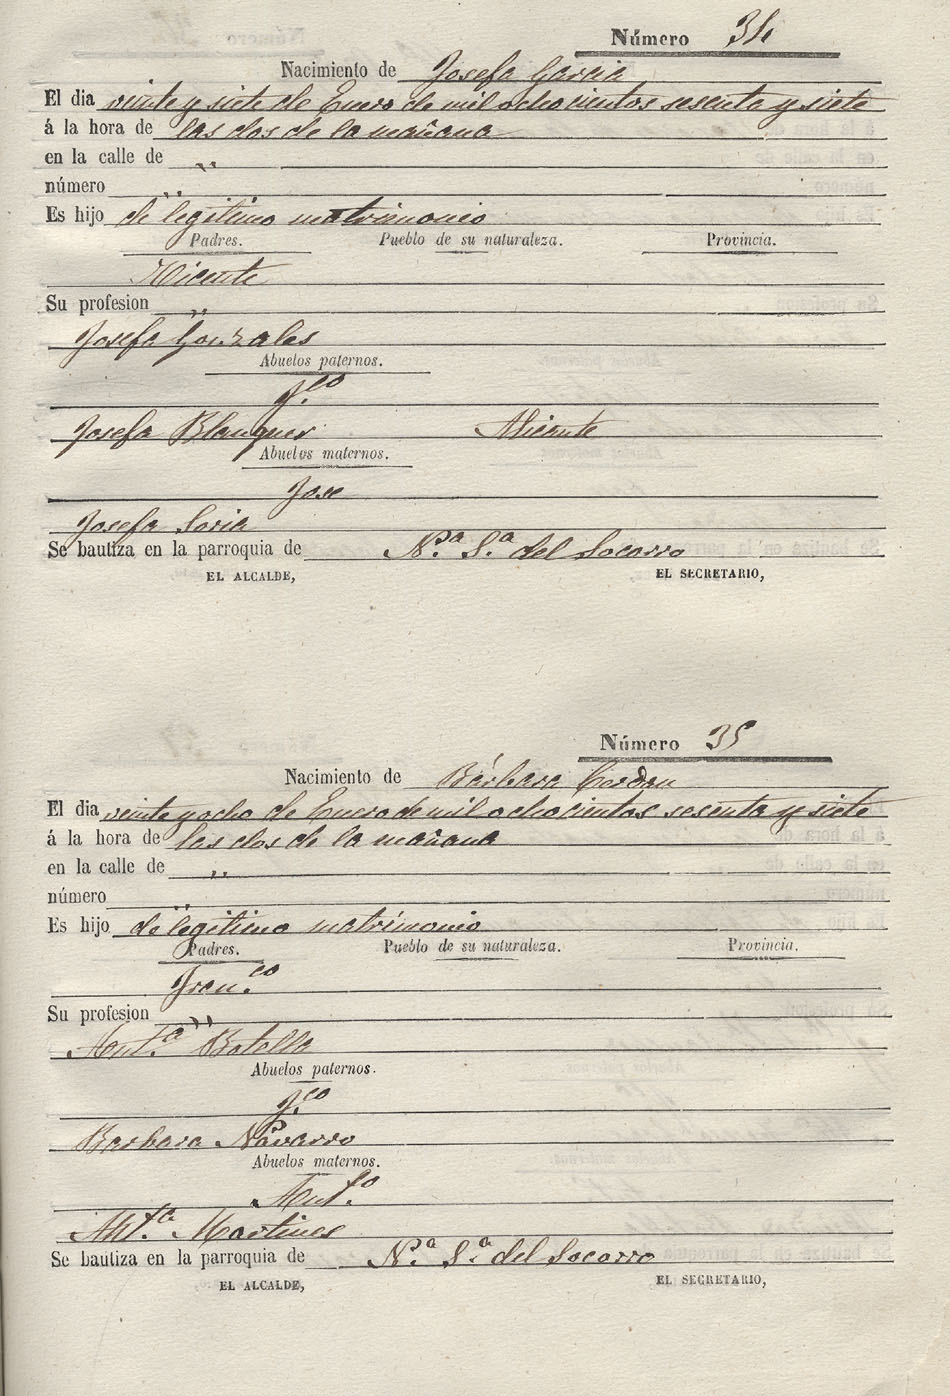 Número 34
Nacimiento de Josefa Garcia
El dia veinte y siete de Enero de mil ochocientos sesenta y siete
á la hora de las dos de la mañana
en la calle de "
número "
Es hijo de legitimo matrimonio
Padres. Pueblo de su naturaleza. Provincia.
Vicente
Su profesion "
Josefa Gonzales
Abuelos paternos.
J.co
Josefa Blanquer Alicante
Abuelos maternos.
Jose
Josefa Soria
Se bautiza en la parroquia de N.a S.a del Socorro
EL ALCALDE, EL SECRETARIO,
Número 35
Nacimiento de Bárbara Cerdan
El dia veinte y ocho de Enero de mil ochocientos sesenta y siete
á la hora de las dos de la mañana
en la calle de "
número "
Es hijo de legitimo matrimonio
Padres. Pueblo de su naturaleza. Provincia.
Fran.co
Su profesion "
Ant.a Botella
Abuelos paternos.
J.co
Barbara Navarro
Abuelos maternos.
Ant.o
Ant.a Martines
Se bautiza en la parroquia de N.a S.a del Socorro
EL ALCALDE, EL SECRETARIO,